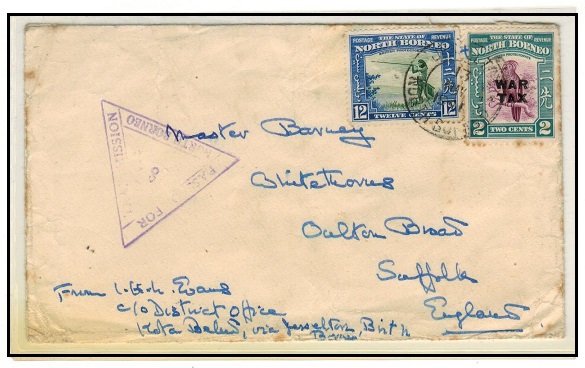 POSTAGE THE STATE OF REVENUE
NORTH BORNEO
十二先
12 12
TWELVE CENTS
POSTAGE THE STATE OF REVENUE
NORTH BORNEO
二先
WAR
TAX
2 TWO CENTS 2
PASSED FOR
TRANSMISSION
NORTH BORNEO
8
Master Barney
Whitethorns
Oulton Broad
Suffolk
England
From Evans
c/o District Office
Kota Belud, via Jesselton, Brit N
Borneo